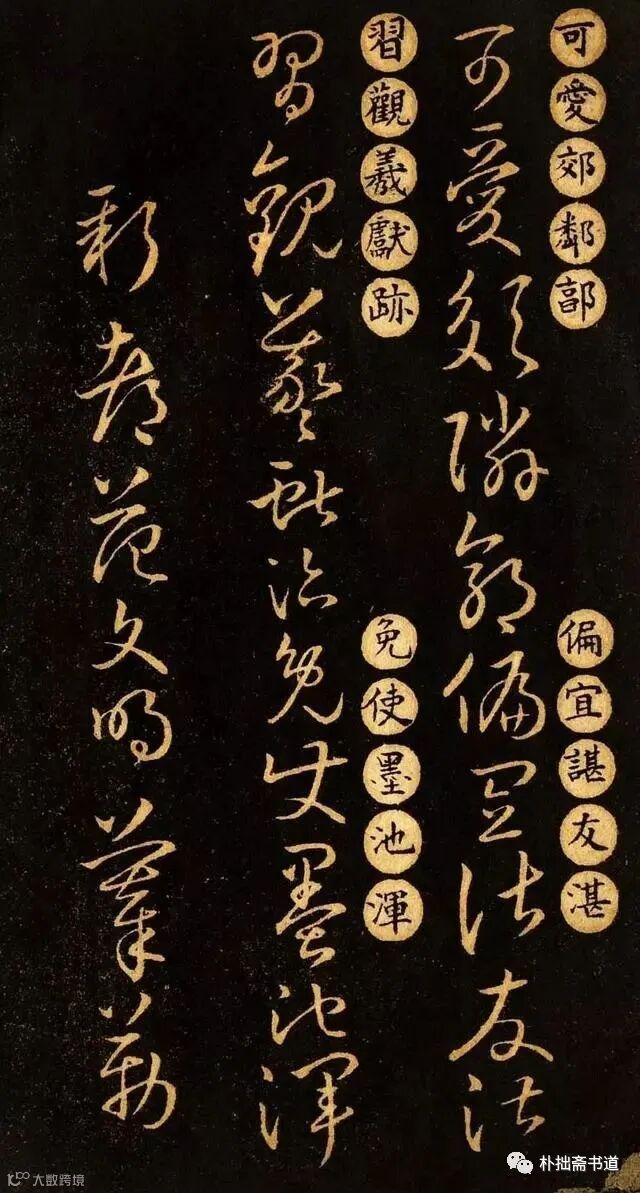 可愛郊鄰郭
偏宜諶友湛
可愛郊隣郭偏宜諶友湛
習觀羲獻跡
免使墨池渾
習觀羲獻跡免使墨池渾
新都范文明勒
朴拙斋书道
大数跨境